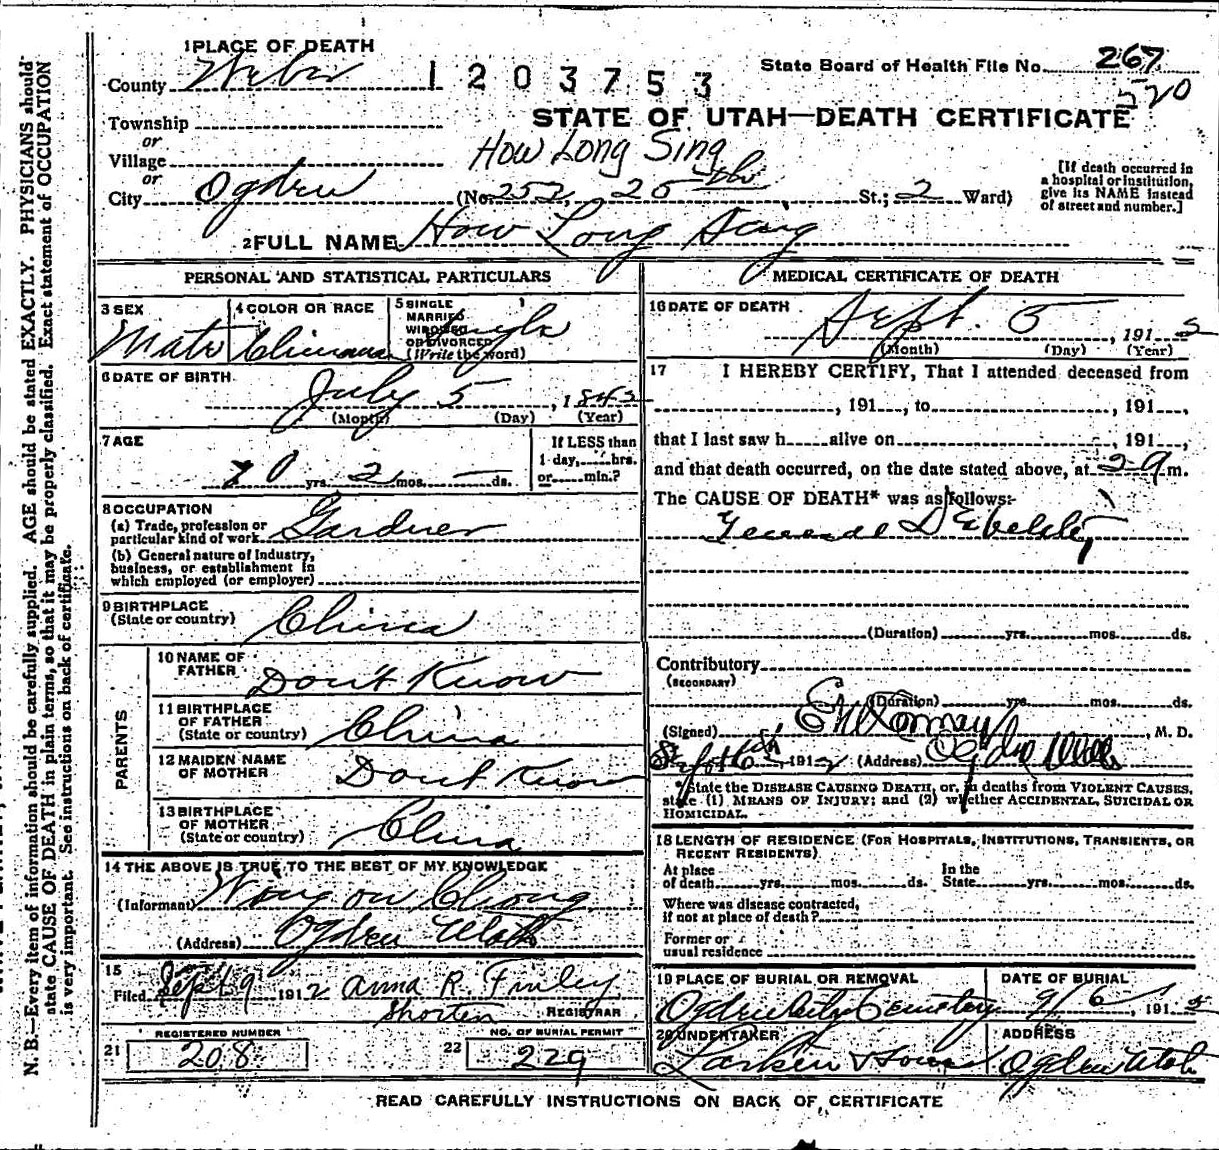 1 PLACE OF DEATH
County Weber
1203753
State Board of Health File No. 267
520
STATE OF UTAH—DEATH CERTIFICATE
Township
or
Village
How Long Sing
or
City Ogden (No. 252, 25th St.; 2 Ward)
[If death occurred in a hospital or institution, give its NAME instead of street and number.]
2 FULL NAME How Long Sing
PERSONAL AND STATISTICAL PARTICULARS
3 SEX
Male
4 COLOR OR RACE
Chinese
5 SINGLE MARRIED WIDOWED OR DIVORCED (Write the word)
Single
6 DATE OF BIRTH
July 5, 1842
(Month) (Day) (Year)
7 AGE
70 yrs. 2 mos. — ds.
If LESS than 1 day, hrs. or min.?
8 OCCUPATION
(a) Trade, profession or particular kind of work Gardner
(b) General nature of Industry, business, or establishment in which employed (or employer)
9 BIRTHPLACE
(State or country) China
PARENTS
10 NAME OF FATHER Dont Know
11 BIRTHPLACE OF FATHER (State or country) China
12 MAIDEN NAME OF MOTHER Dont Know
13 BIRTHPLACE OF MOTHER (State or country) China
14 THE ABOVE IS TRUE TO THE BEST OF MY KNOWLEDGE
(Informant) Wong ow Chong
(Address) Ogden Utah
15
Filed Sept 9 1912 Anna R. Finley
Shorten REGISTRAR
21 REGISTERED NUMBER
208
22 NO. OF BURIAL PERMIT
229
MEDICAL CERTIFICATE OF DEATH
16 DATE OF DEATH
Sept. 5, 1912
(Month) (Day) (Year)
17 I HEREBY CERTIFY, That I attended deceased from
, 191 , to , 191 ,
that I last saw h alive on , 191 ,
and that death occurred, on the date stated above, at 2 a m.
The CAUSE OF DEATH* was as follows:
General Debility
(Duration) yrs. mos. ds.
Contributory
(SECONDARY)
(Duration) yrs. mos. ds.
(Signed) , M. D.
Sept 6th 1912 (Address) Ogden Utah
*State the DISEASE CAUSING DEATH, or, in deaths from VIOLENT CAUSES, state (1) MEANS OF INJURY; and (2) whether ACCIDENTAL, SUICIDAL OR HOMICIDAL.
18 LENGTH OF RESIDENCE (FOR HOSPITALS, INSTITUTIONS, TRANSIENTS, OR RECENT RESIDENTS)
At place of death yrs. mos. ds. In the State yrs. mos. ds.
Where was disease contracted, if not at place of death?
Former or usual residence
19 PLACE OF BURIAL OR REMOVAL
Ogden City Cemetery
DATE OF BURIAL
9/6, 1912
20 UNDERTAKER
Larkin & Sons
ADDRESS
Ogden Utah
READ CAREFULLY INSTRUCTIONS ON BACK OF CERTIFICATE
N. B.—Every item of information should be carefully supplied. AGE should be stated EXACTLY. PHYSICIANS should
state CAUSE OF DEATH in plain terms, so that it may be properly classified. Exact statement of OCCUPATION
is very important. See instructions on back of certificate.